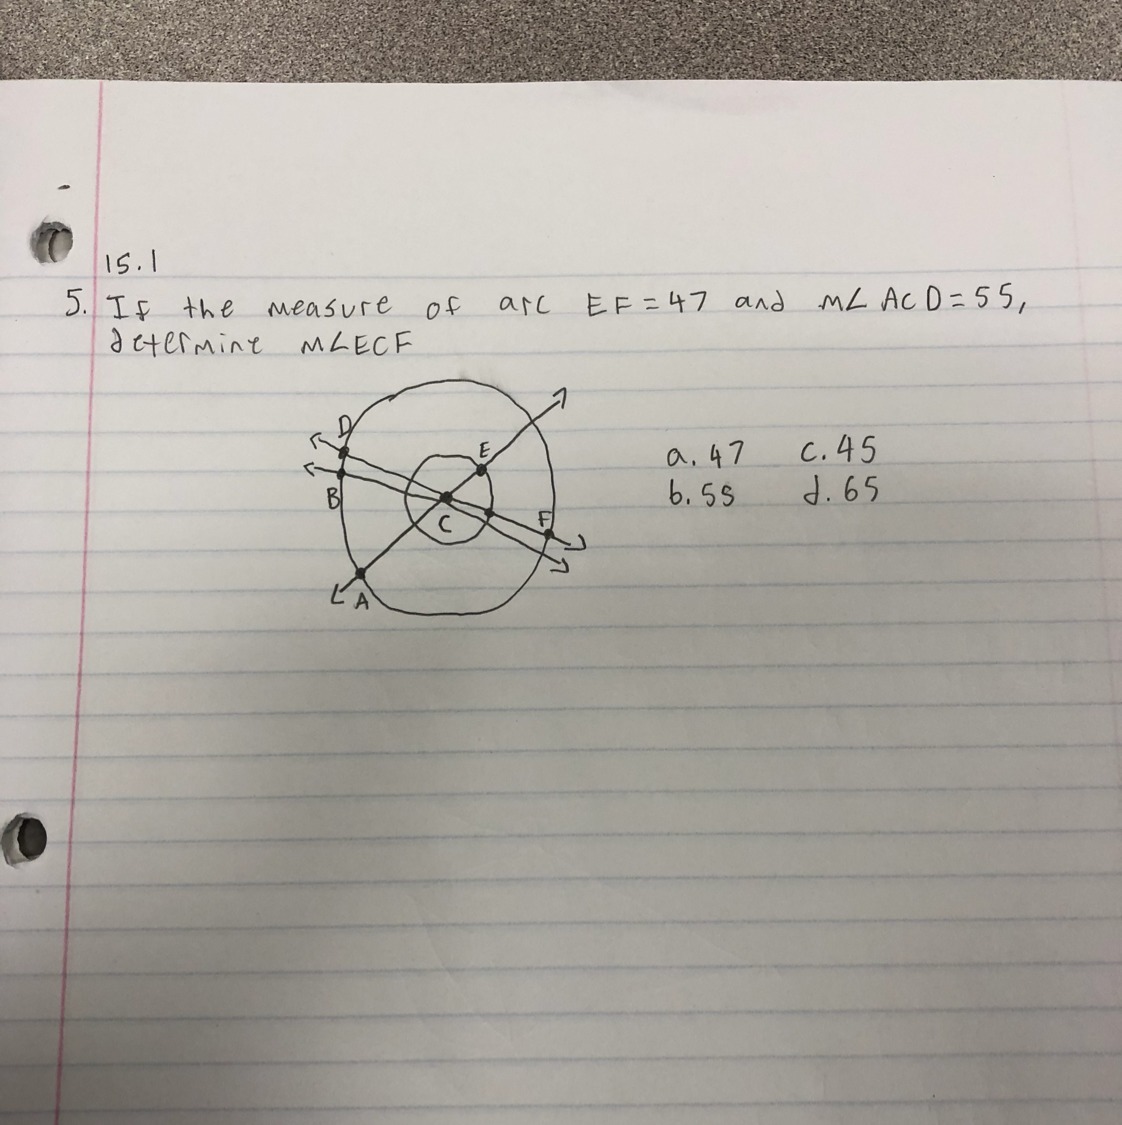 15.1
5. If the measure of arc EF=47 and m∠ACD=55,
determine m∠ECF
D
E
B
C
F
A
a. 47 c. 45
b. 55 d. 65